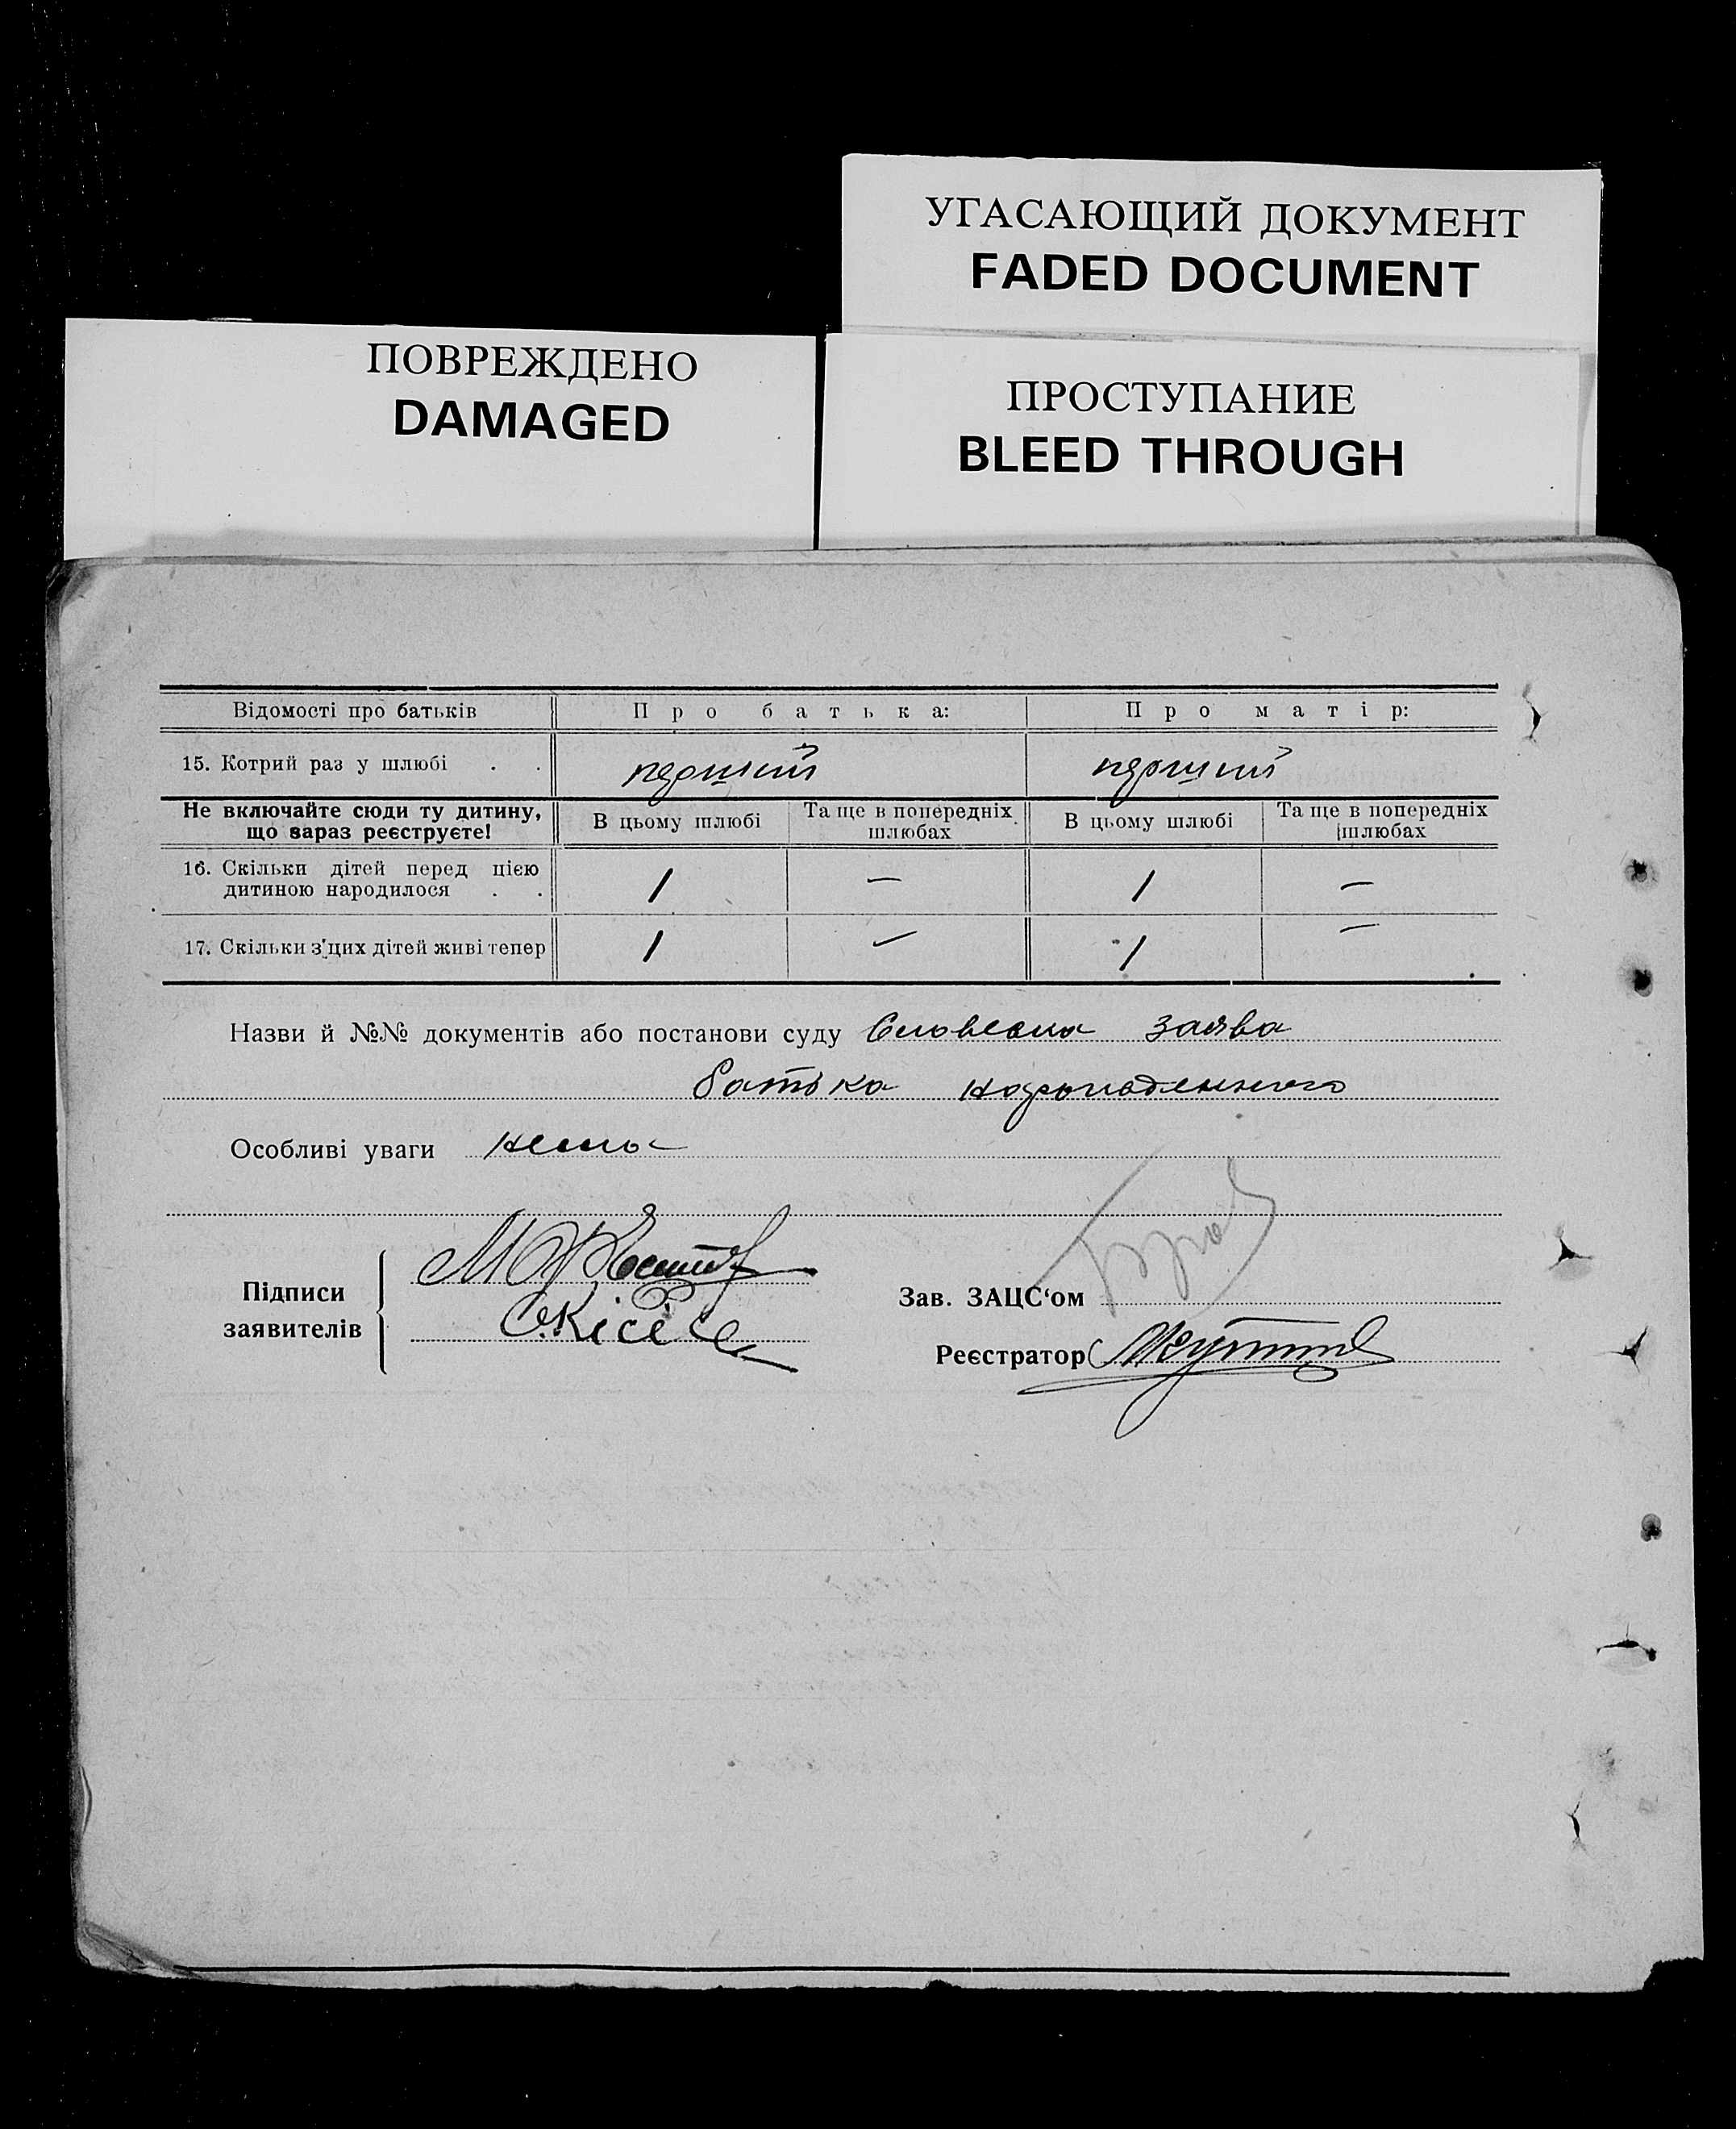 УГАСАЮЩИЙ ДОКУМЕНТ
FADED DOCUMENT
ПОВРЕЖДЕНО
DAMAGED
ПРОСТУПАНИЕ
BLEED THROUGH
Відомості про батьків Про батька: Про матір:
15. Котрий раз у шлюбі . . перший перший
Не включайте сюди ту дитину, що зараз реєструєте! В цьому шлюбі Та ще в попередніх шлюбах В цьому шлюбі Та ще в попередніх шлюбах
16. Скільки дітей перед цією
дитиною народилося . . 1 — 1 —
17. Скільки з цих дітей живі тепер 1 — 1 —
Назви й №№ документів або постанови суду Словесна заява
батька
Особливі уваги нема
Підписи
заявителів
Зав. ЗАЦС‘ом
Реєстратор